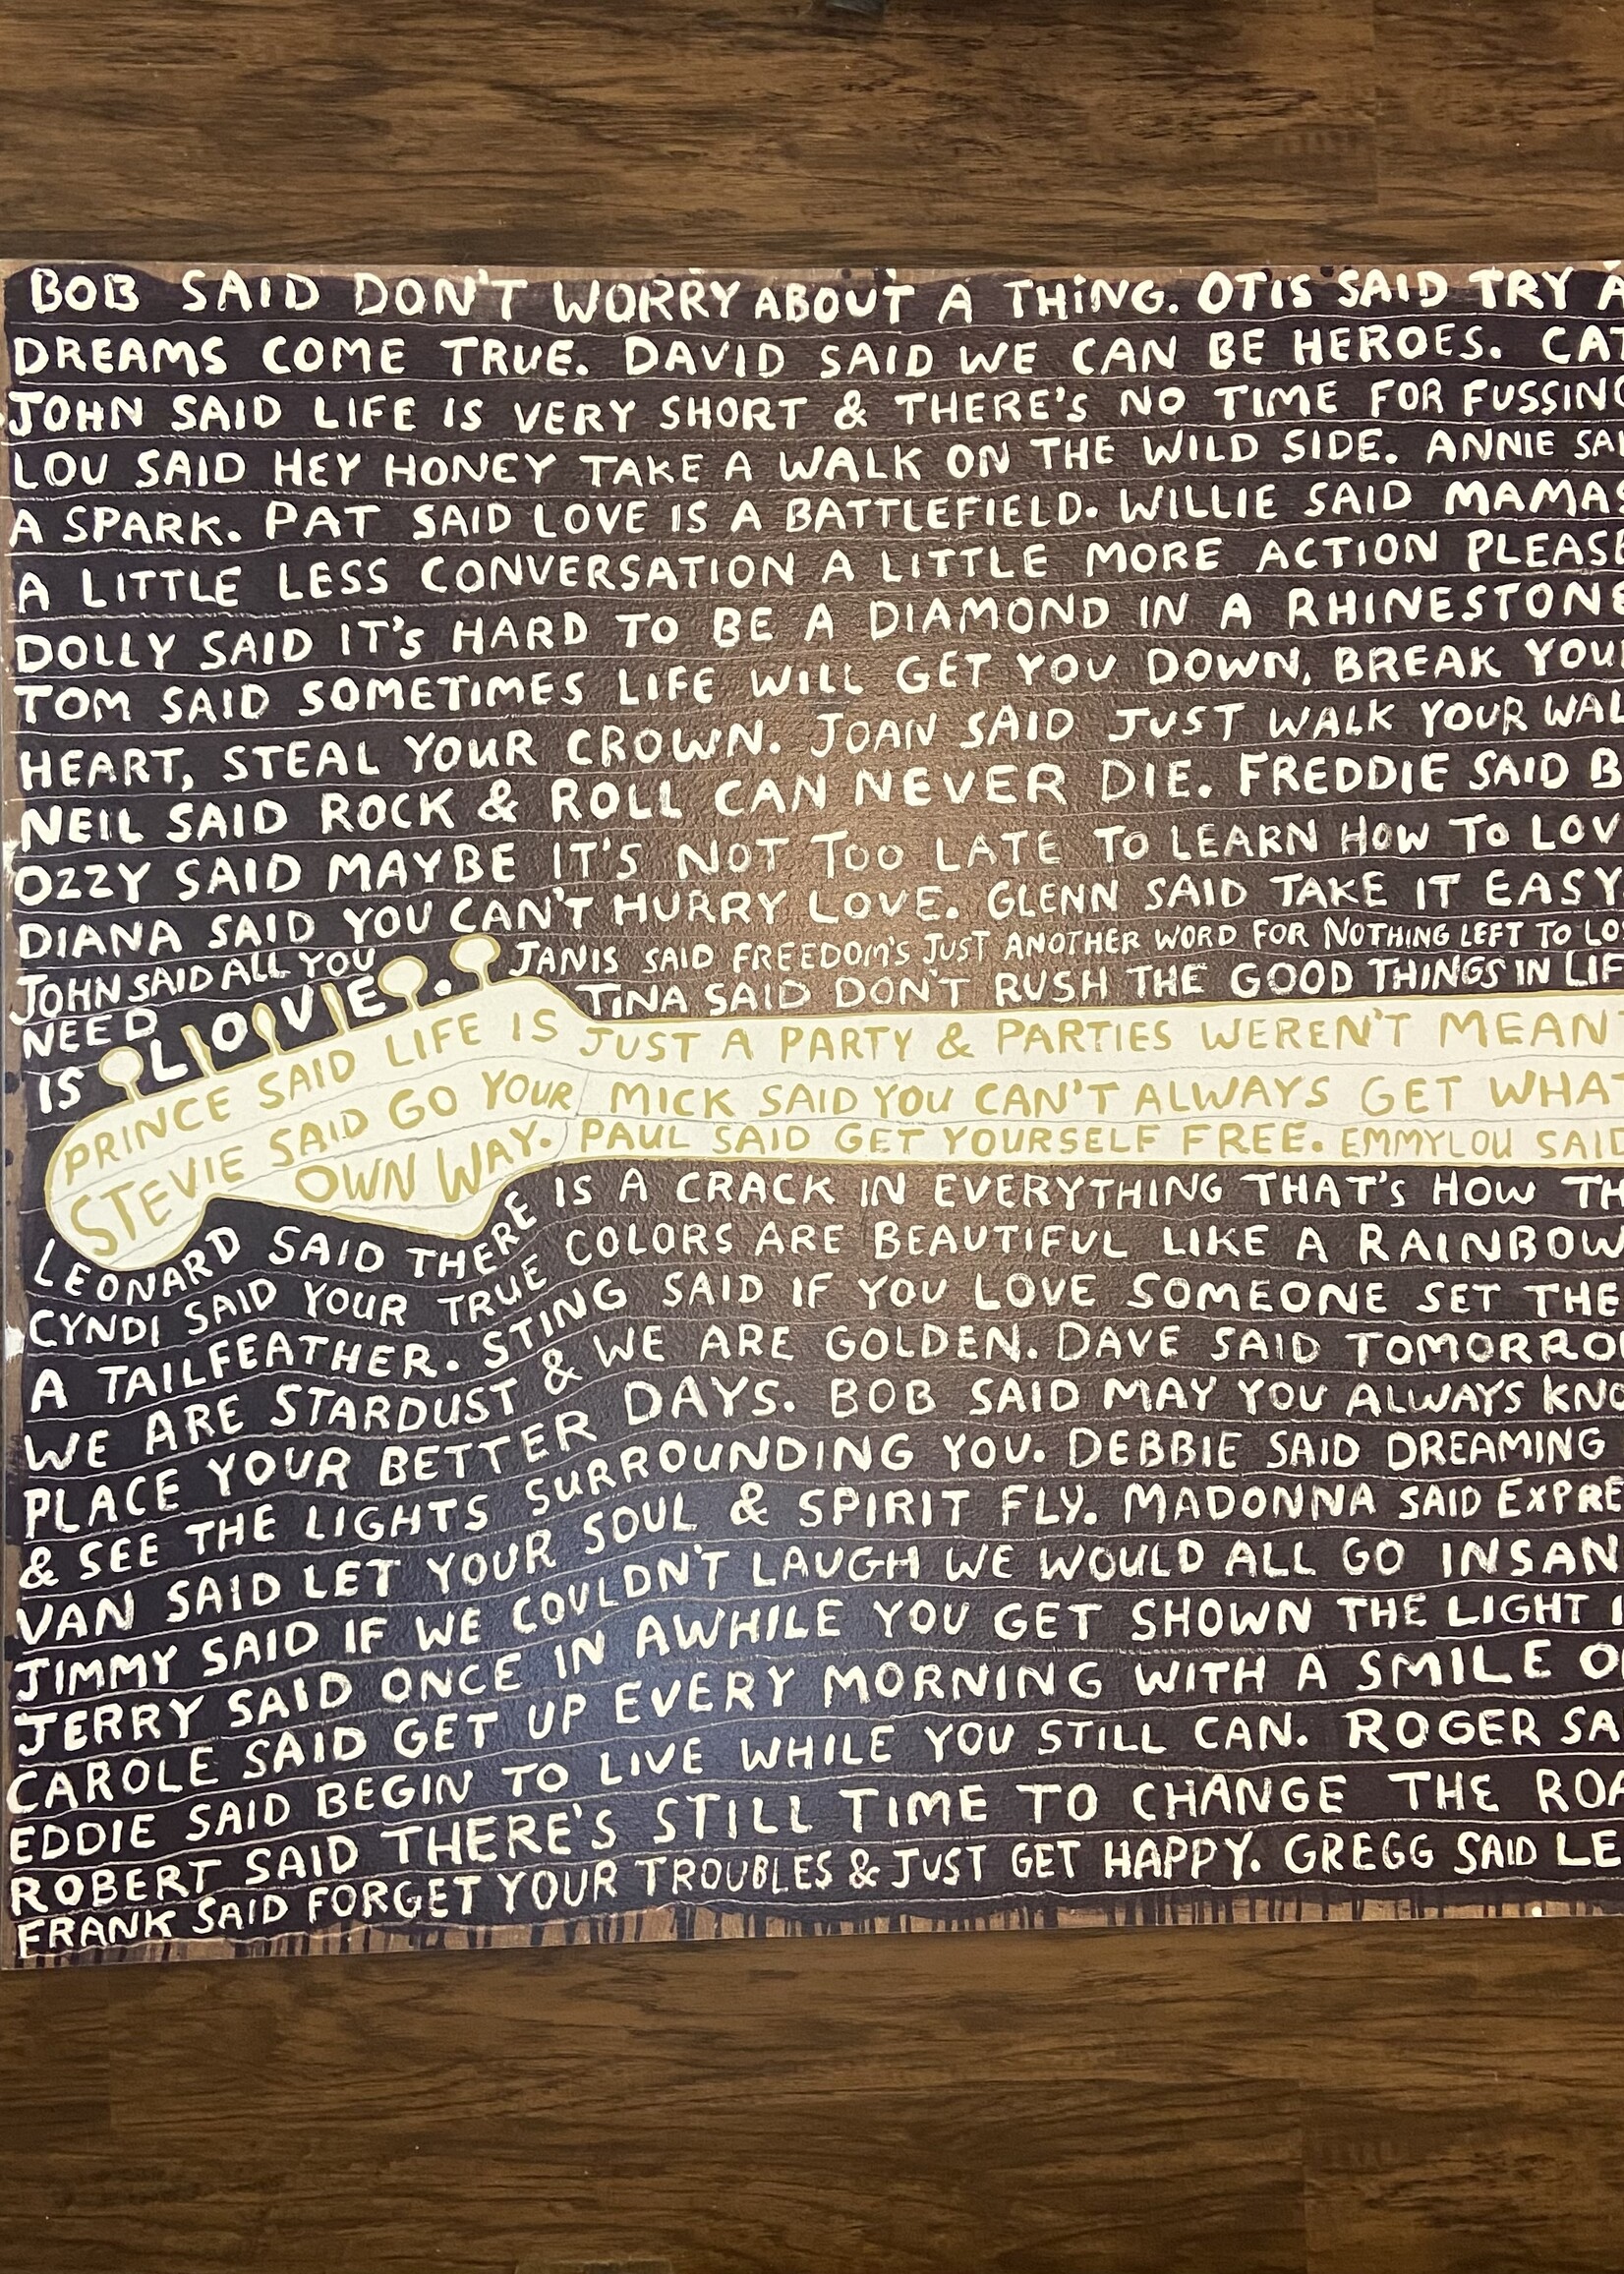 BOB SAID DON'T WORRY ABOUT A THING. OTIS SAID TRY A
DREAMS COME TRUE. DAVID SAID WE CAN BE HEROES. CAT
JOHN SAID LIFE IS VERY SHORT & THERE'S NO TIME FOR FUSSING
LOU SAID HEY HONEY TAKE A WALK ON THE WILD SIDE. ANNIE SAI
A SPARK. PAT SAID LOVE IS A BATTLEFIELD. WILLIE SAID MAMAS
A LITTLE LESS CONVERSATION A LITTLE MORE ACTION PLEASE
DOLLY SAID IT'S HARD TO BE A DIAMOND IN A RHINESTONE
TOM SAID SOMETIMES LIFE WILL GET YOU DOWN, BREAK YOUR
HEART, STEAL YOUR CROWN. JOAN SAID JUST WALK YOUR WAL
NEIL SAID ROCK & ROLL CAN NEVER DIE. FREDDIE SAID B
OZZY SAID MAYBE IT'S NOT TOO LATE TO LEARN HOW TO LOV
DIANA SAID YOU CAN'T HURRY LOVE. GLENN SAID TAKE IT EASY
JOHN SAID ALL YOU
NEED
IS LOVE.
JANIS SAID FREEDOM'S JUST ANOTHER WORD FOR NOTHING LEFT TO LOS
TINA SAID DON'T RUSH THE GOOD THINGS IN LIF
PRINCE SAID LIFE IS JUST A PARTY & PARTIES WEREN'T MEAN
STEVIE SAID GO YOUR
OWN WAY.
MICK SAID YOU CAN'T ALWAYS GET WHAT
PAUL SAID GET YOURSELF FREE. EMMYLOU SAID
LEONARD SAID THERE IS A CRACK IN EVERYTHING THAT'S HOW TH
CYNDI SAID YOUR TRUE COLORS ARE BEAUTIFUL LIKE A RAINBOW
A TAILFEATHER. STING SAID IF YOU LOVE SOMEONE SET THE
WE ARE STARDUST & WE ARE GOLDEN. DAVE SAID TOMORRO
PLACE YOUR BETTER DAYS. BOB SAID MAY YOU ALWAYS KNO
& SEE THE LIGHTS SURROUNDING YOU. DEBBIE SAID DREAMING
VAN SAID LET YOUR SOUL & SPIRIT FLY. MADONNA SAID EXPRE
JIMMY SAID IF WE COULDN'T LAUGH WE WOULD ALL GO INSAN
JERRY SAID ONCE IN AWHILE YOU GET SHOWN THE LIGHT I
CAROLE SAID GET UP EVERY MORNING WITH A SMILE O
EDDIE SAID BEGIN TO LIVE WHILE YOU STILL CAN. ROGER SA
ROBERT SAID THERE'S STILL TIME TO CHANGE THE ROA
FRANK SAID FORGET YOUR TROUBLES & JUST GET HAPPY. GREGG SAID LE